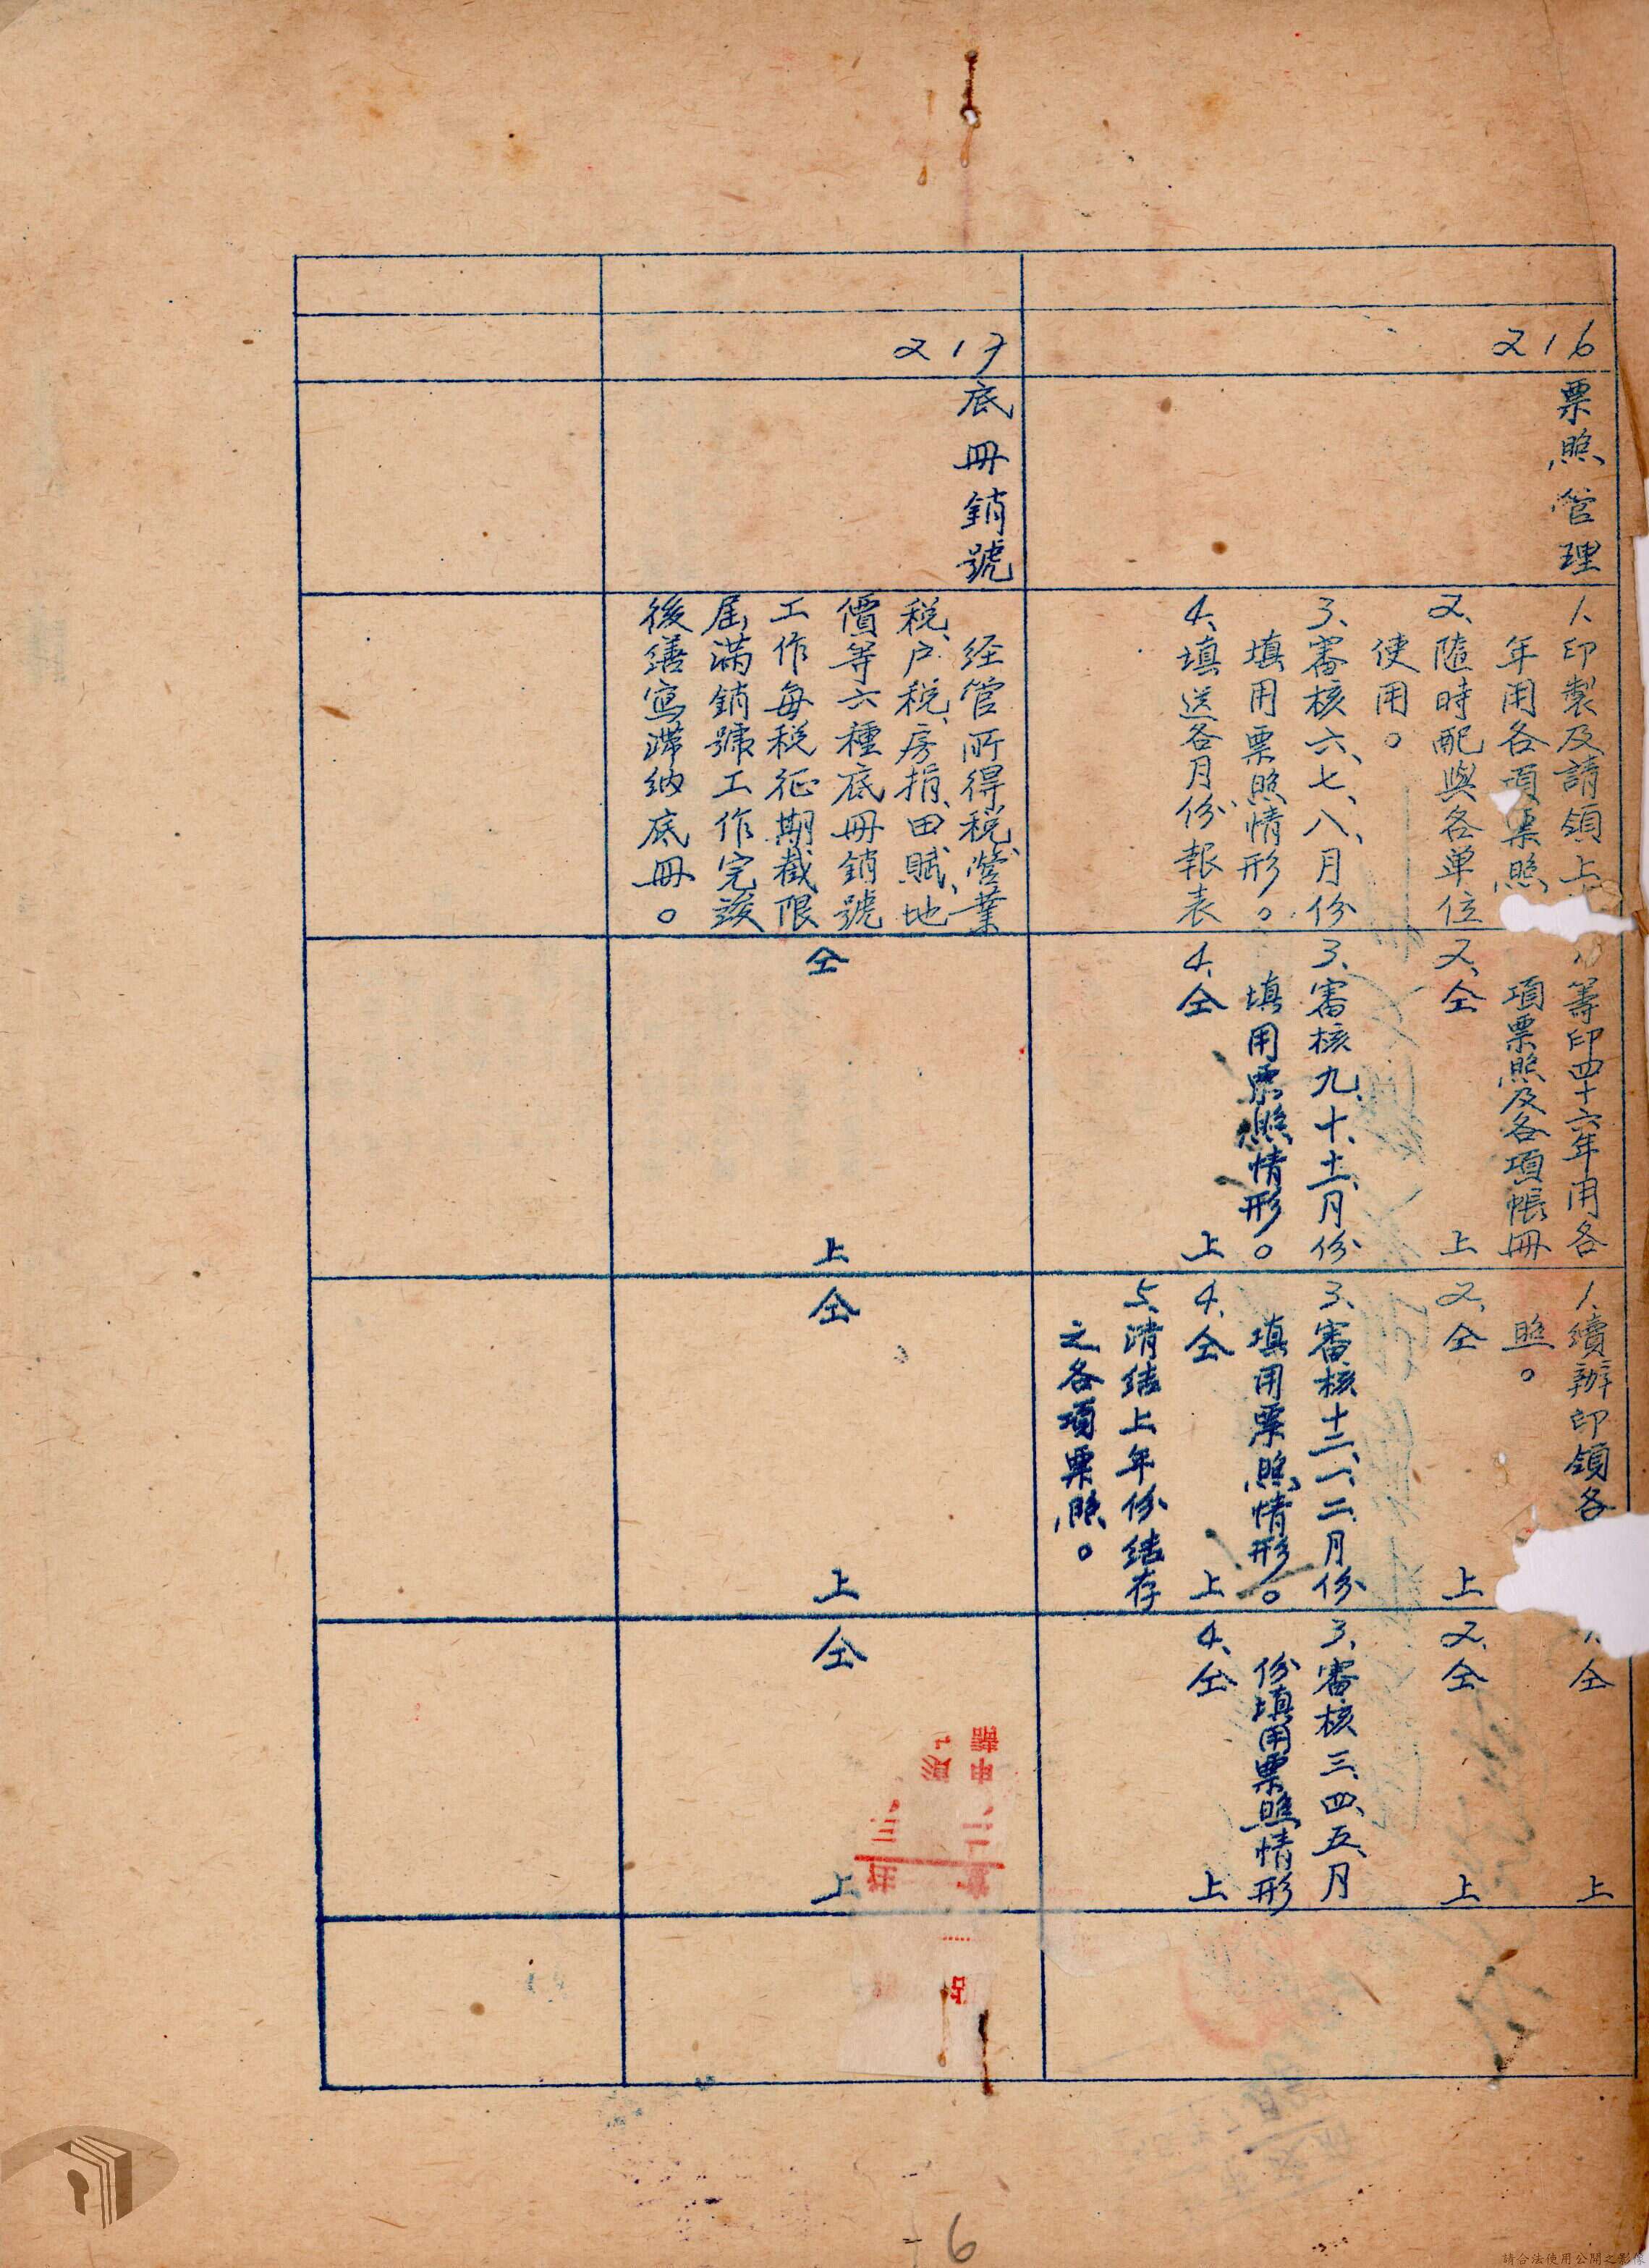 216
票照管理
1、印製及請領上
年用各項票照
2、隨時配與各单位
使用。
3、審核六、七、八、月份
填用票照情形。
4、填送各月份報表
籌印四十六年用各
項票照及各項帳冊
2、仝上
3、審核九、十、十一、月份
填用票照情形。
4、仝上
1、續辦印領各
照。
2、仝上
3、審核十二、一、二、月份
填用票照情形。
4、仝上
5、清结上年份结存
之各項票照。
1、仝上
2、仝上
3、審核三、四、五、月
份填用票照情形
4、仝上
217
底冊銷號
经管所得税、營業
税、户税、房捐、田賦、地
價等六種底冊銷號
工作每税征期截限
届滿銷號工作完竣
後繕寫滞纳底冊。
仝上
仝上
仝上
6
請合法使用公開之影像